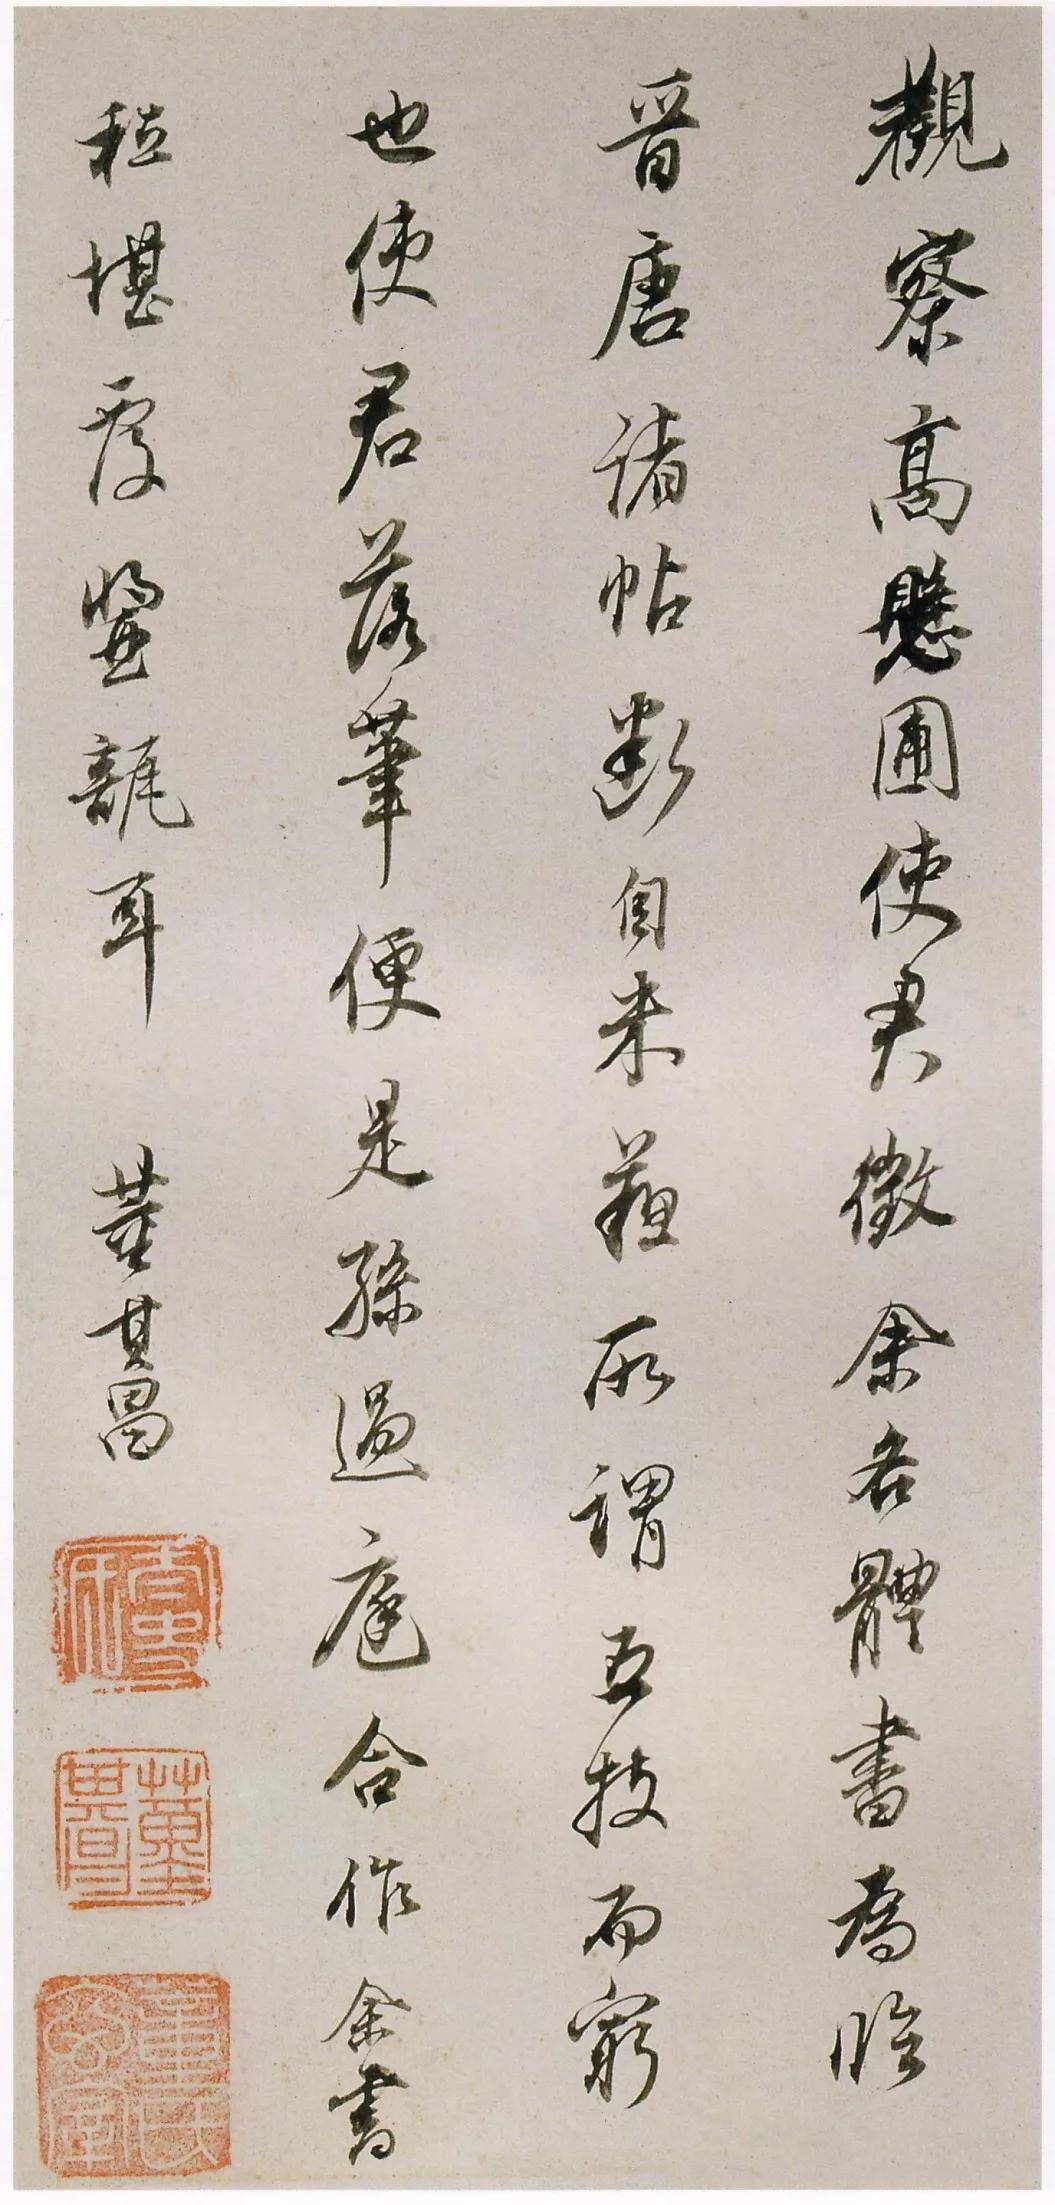 觀察高懸圃使君徵余各體書為臨
晉唐諸帖斷自米蘇所謂五技而窮
也使君落筆便是孫過庭合作余書
秪堪覆醬瓿耳 董其昌
董其昌